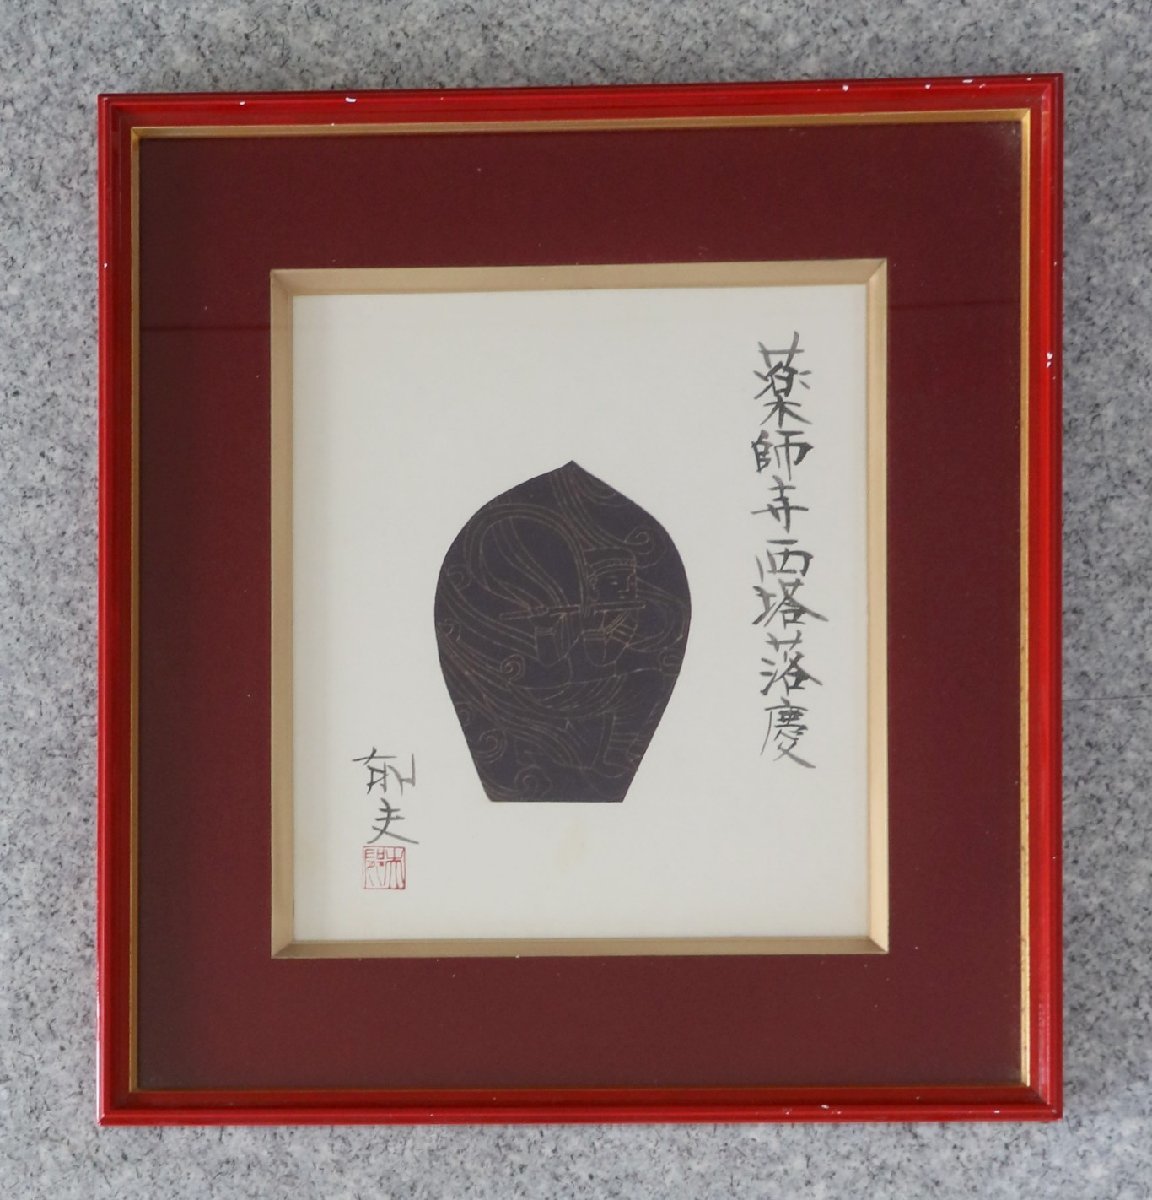 薬師寺西塔落慶
郁夫